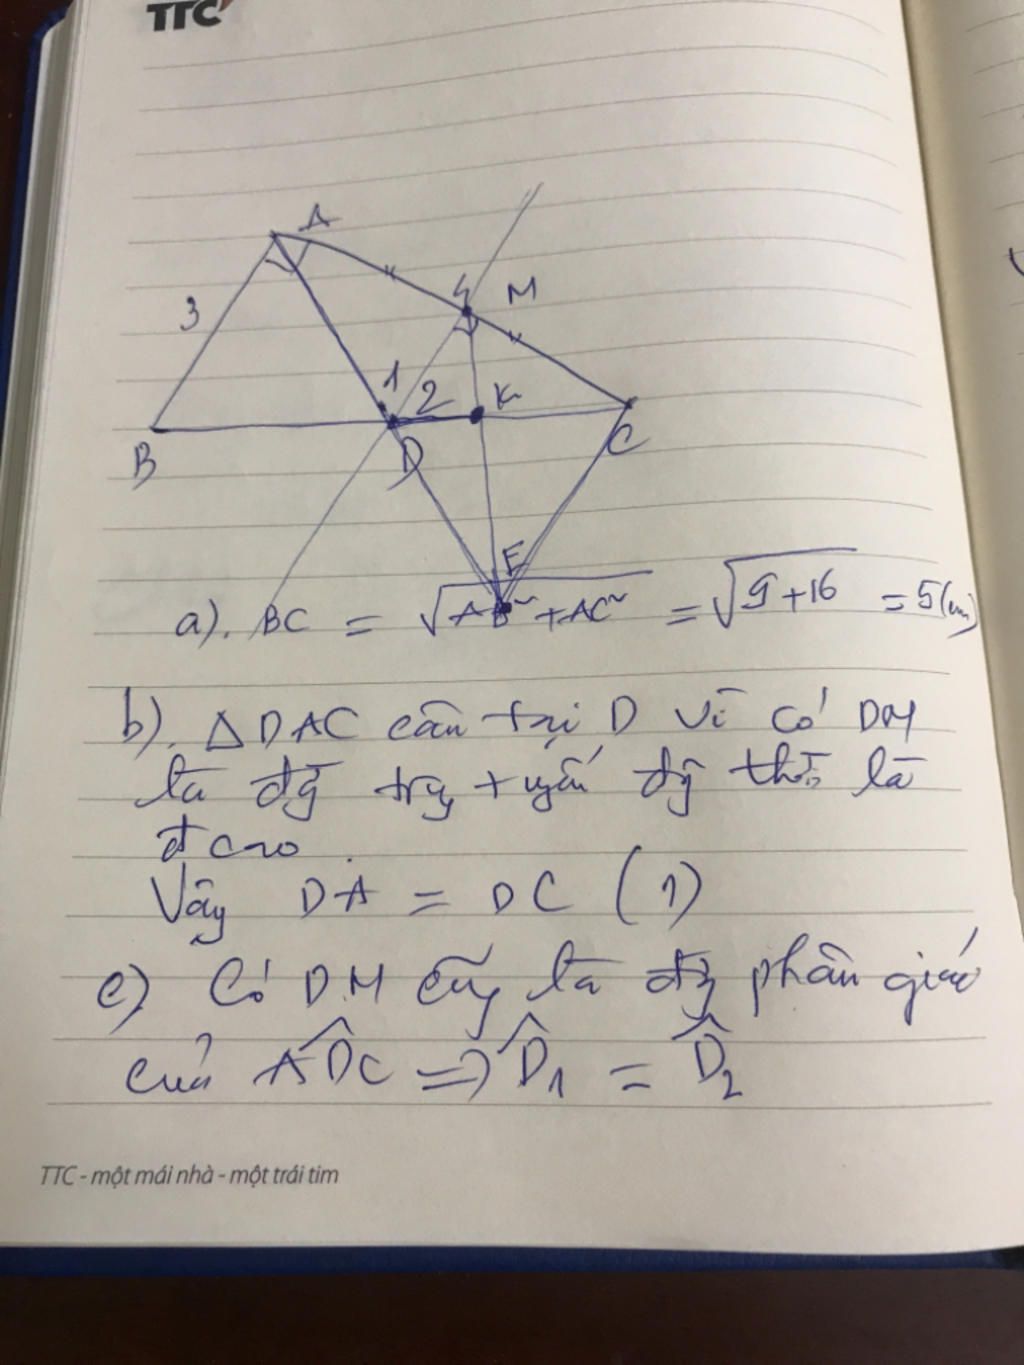 TTC
A
3
4
M
1
2
K
B
D
C
E
a). BC = √AB² + AC² = √9 + 16 = 5 (cm)
b). Δ DAC cân tại D vì có DM
là đg trg tuyến đg thời là
đ cao.
Vây DA = DC (1)
c) Có DM cũg là đg phân giác
của ADC => D₁ = D₂
TTC - một mái nhà - một trái tim